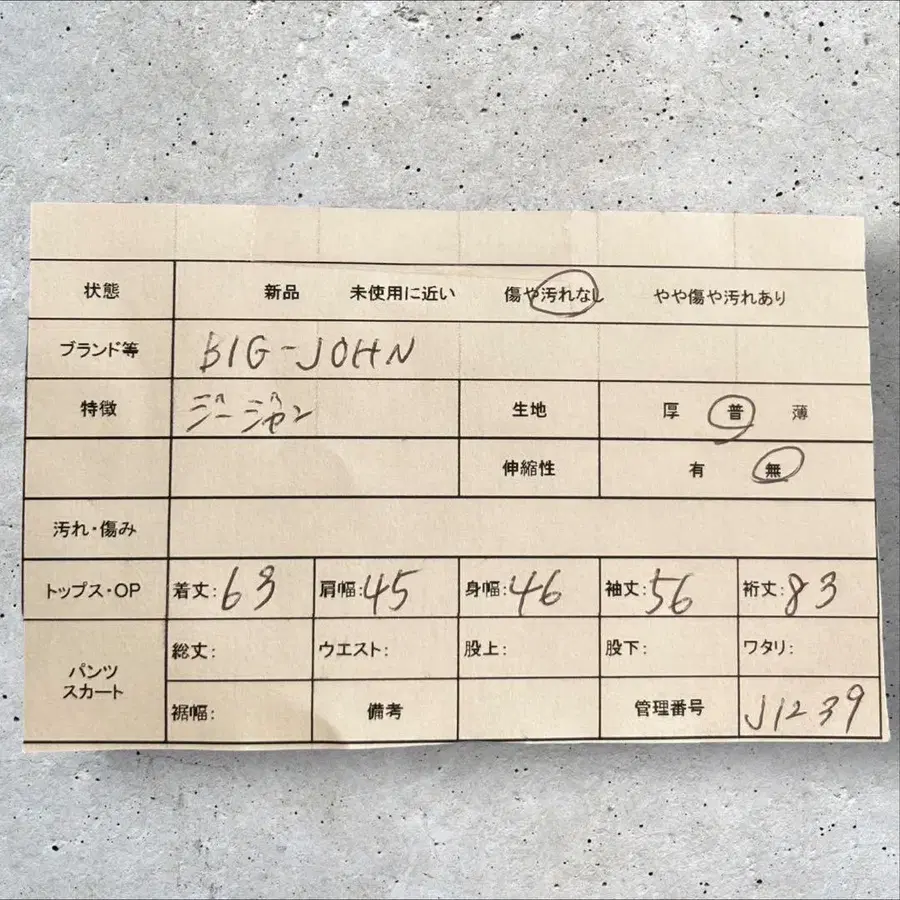 状態 新品 未使用に近い 傷や汚れなし やや傷や汚れあり
ブランド等 BIG-JOHN
特徴 ジージャン 生地 厚 普 薄
伸縮性 有 無
汚れ・傷み
トップス・OP 着丈:63 肩幅:45 身幅:46 袖丈:56 裄丈:83
パンツ スカート 総丈: ウエスト: 股上: 股下: ワタリ:
裾幅: 備考 管理番号 J1239